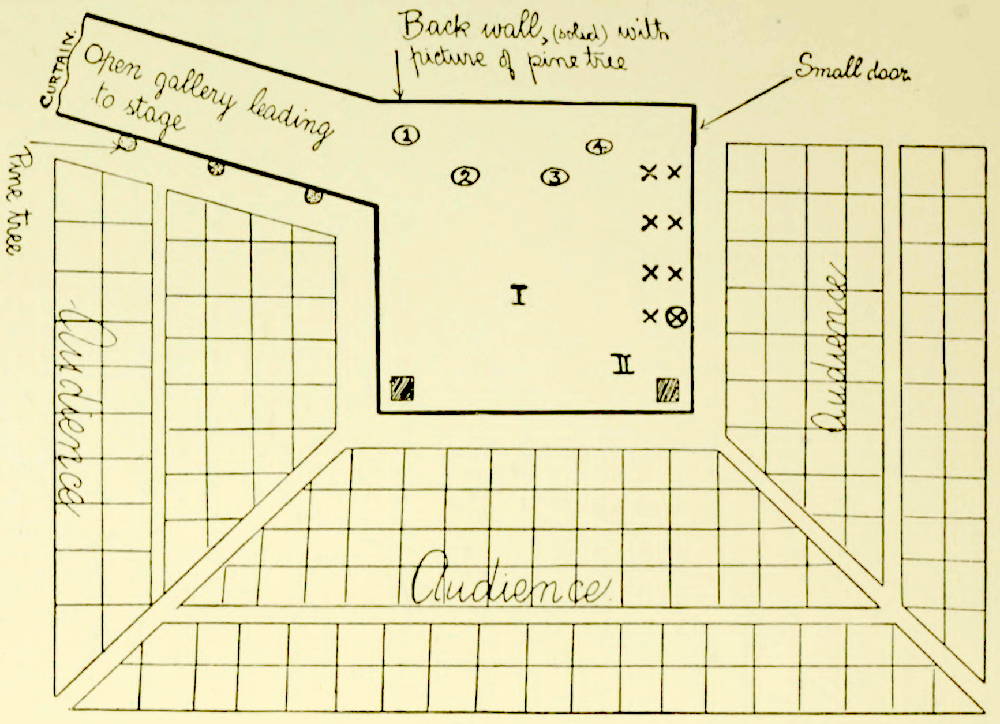 Back wall, (solid) with
picture of pine tree
Small door
CURTAIN.
Open gallery leading
to stage
Pine tree
1
2
3
4
I
II
Audience
Audience
Audience